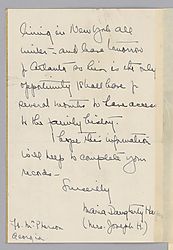 living in New York all
winter – and leave tomorrow
for Atlanta so this is the only
opportunity I shall have for
several months to have access
to the family history –
I hope this information
will help to complete your
records –
Sincerely
Maria Daugherty
(Mrs. Joseph H.)
Ft. McPherson
Georgia